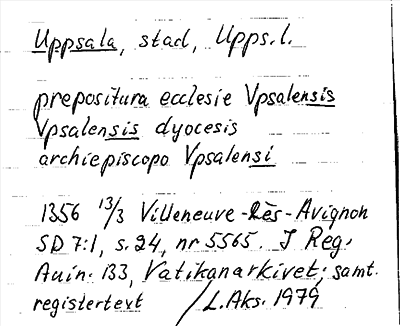 Uppsala, stad, Upps.l.
prepositura ecclesie Vpsalensis
Vpsalensis dyocesis
archiepiscopo Vpsalensi
1356 13/3 Villeneuve-lès-Avignon
SD 7:1, s. 24, nr 5565. I Reg.
Auin. 133, Vatikanarkivet; samt.
registertext /L.Aks. 1979